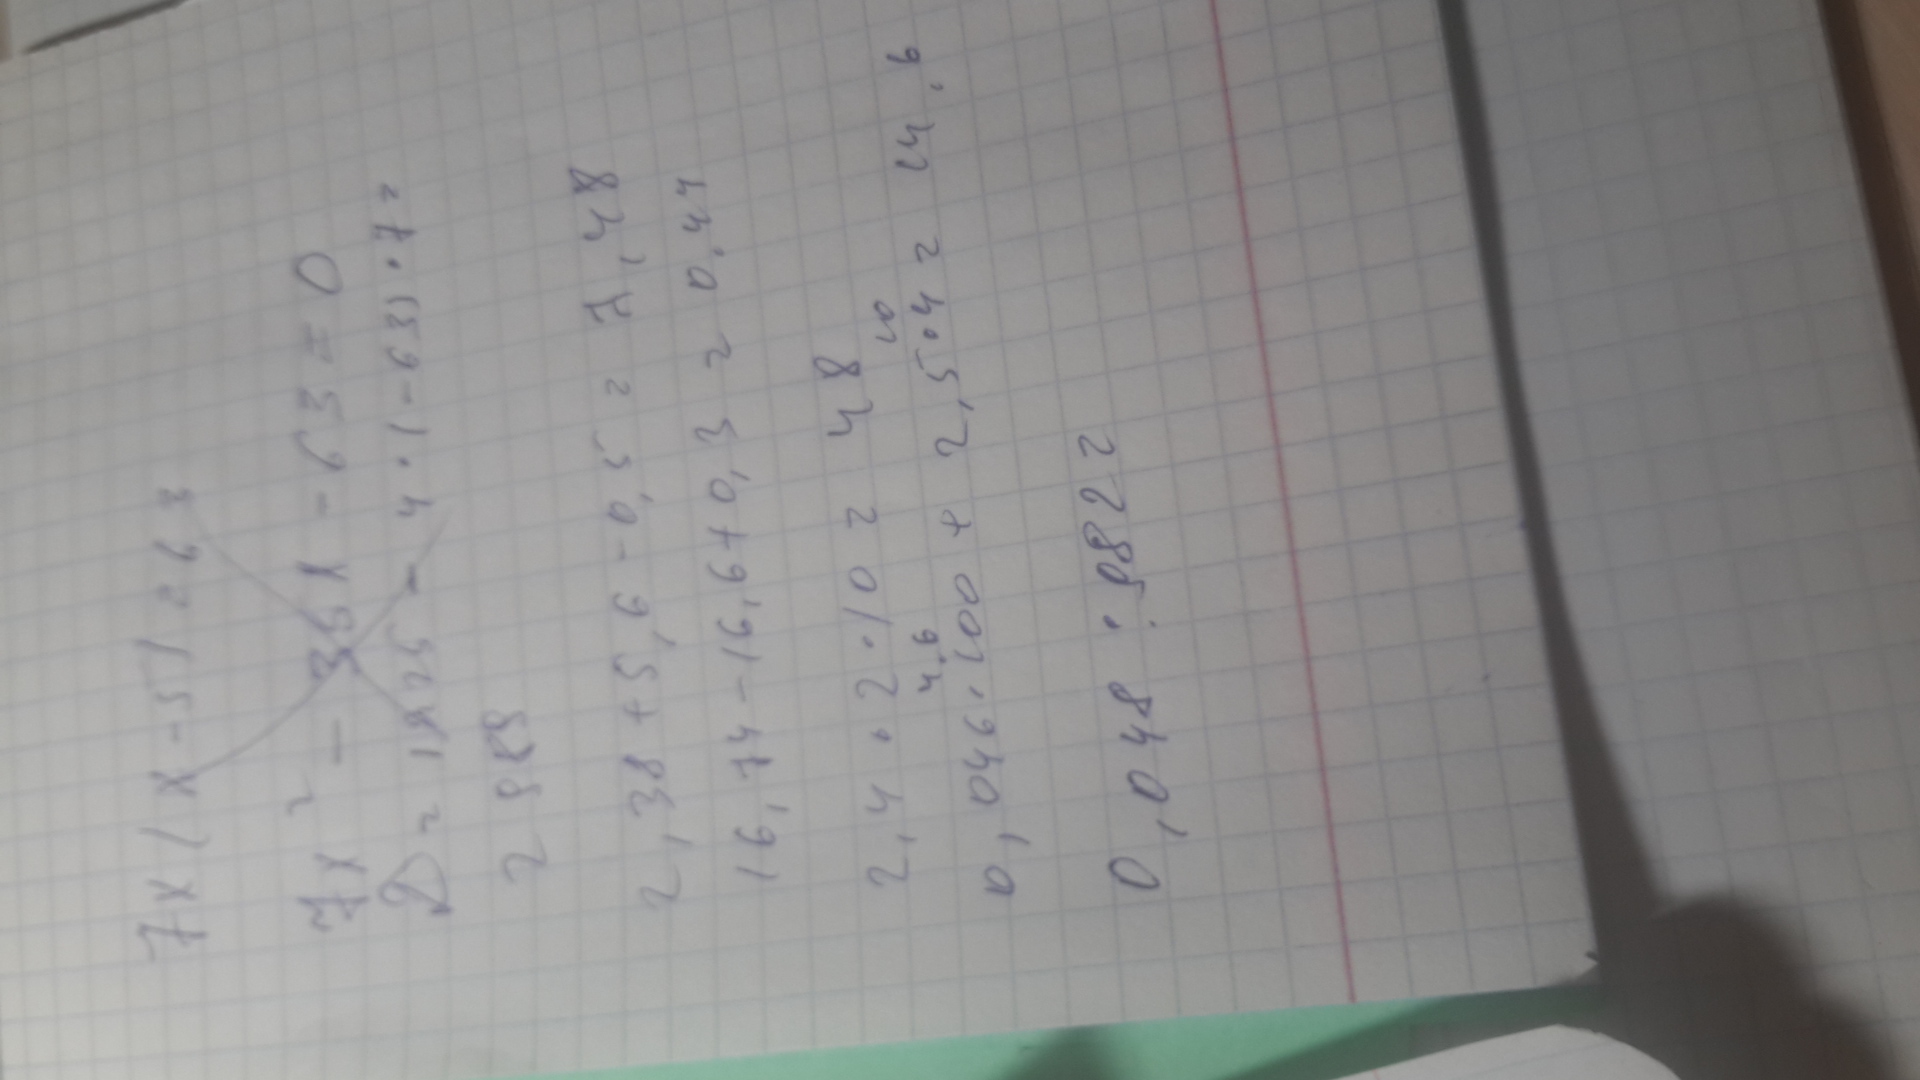 7x(x-5)=63
7x² - 35x - 63=0
D= 1225 - 4·(-63)·7=
2,38+5,6-0,5=7,48
16,74-16,6+0,3=0,44
2,4·2·10=48
4,6 10
0,046·100+2,5·4=14,6
0,048: